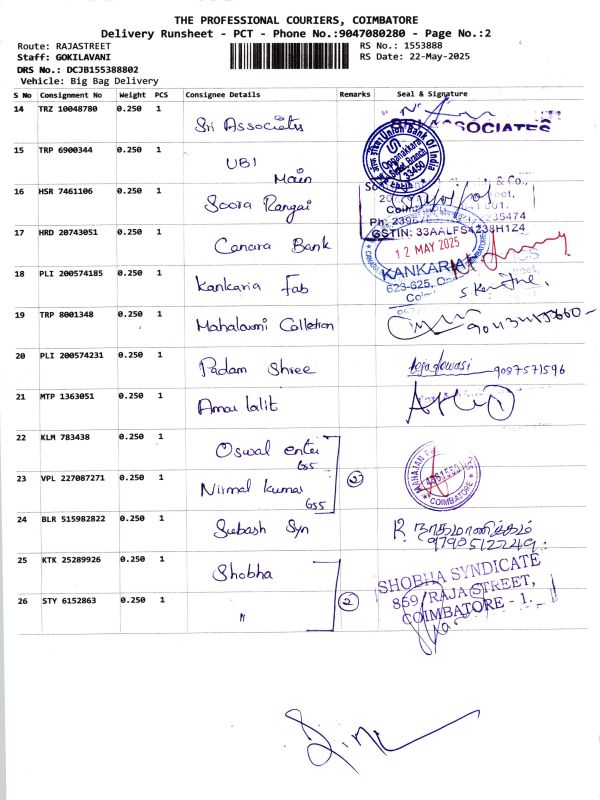 THE PROFESSIONAL COURIERS, COIMBATORE
Delivery Runsheet - PCT - Phone No.:9047080280 - Page No.:2
Route: RAJASTREET
RS No.: 1553888
Staff: GOKILAVANI
RS Date: 22-May-2025
DRS No.: DCJB155388802
Vehicle: Big Bag Delivery
S No Consignment No Weight PCS Consignee Details Remarks Seal & Signature
14 TRZ 10048780 0.250 1 Sri Associates
SRI ASSOCIATES
15 TRP 6900344 0.250 1 UBI Main
Union Bank Of India
Oppanakkara Street Branch
16 HSR 7461106 0.250 1 Soora Rangai
& Co.,
Ph: 235474
GSTIN: 33AALFS4238H1Z4
17 HRD 20743051 0.250 1 Canara Bank
12 MAY 2025
COIMBATORE
18 PLI 200574185 0.250 1 Kankaria Fab
KANKARIA
623-625,
19 TRP 8001348 0.250 1 Mahalaxmi Colletion
20 PLI 200574231 0.250 1 Padam Shree
9087571596
21 MTP 1363051 0.250 1 Amar lalit
22 KLM 783438 0.250 1 Oswal enter
655
23 VPL 227087271 0.250 1 Nirmal kumar 2
655
MAHAJAN
COIMBATORE
24 BLR 515982822 0.250 1 Subash Syn
R. நாகமாணிக்கம்
9790512249
25 KTK 25289926 0.250 1 Shobha
26 STY 6152863 0.250 1 " 2
SHOBHA SYNDICATE
859/RAJA STREET,
COIMBATORE - 1.